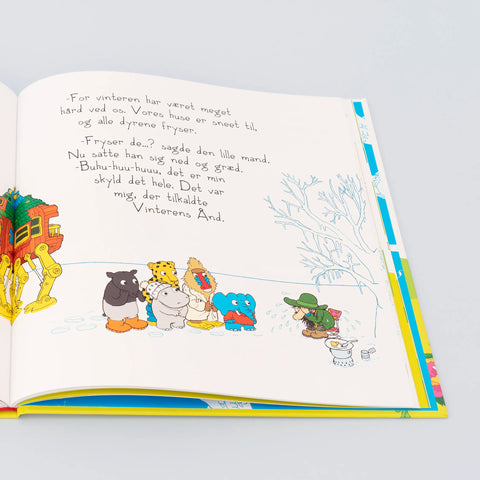 -For vinteren har været meget
hård ved os. Vores huse er sneet til,
og alle dyrene fryser.
-Fryser de...? sagde den lille mand.
Nu satte han sig ned og græd.
-Buhu-huu-huuu, det er min
skyld det hele. Det var
mig, der tilkaldte
Vinterens Ånd.